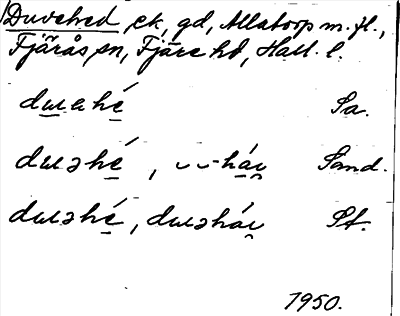 Duvehed ck, gd, Allatorp m. fl.,
Fjärås sn, Fjäre hd, Hall. l.
duɐhé Sa.
duəhé, ᴗᴗ-háu̯ Sand.
duəhé, duəháu̯ St.
1950.